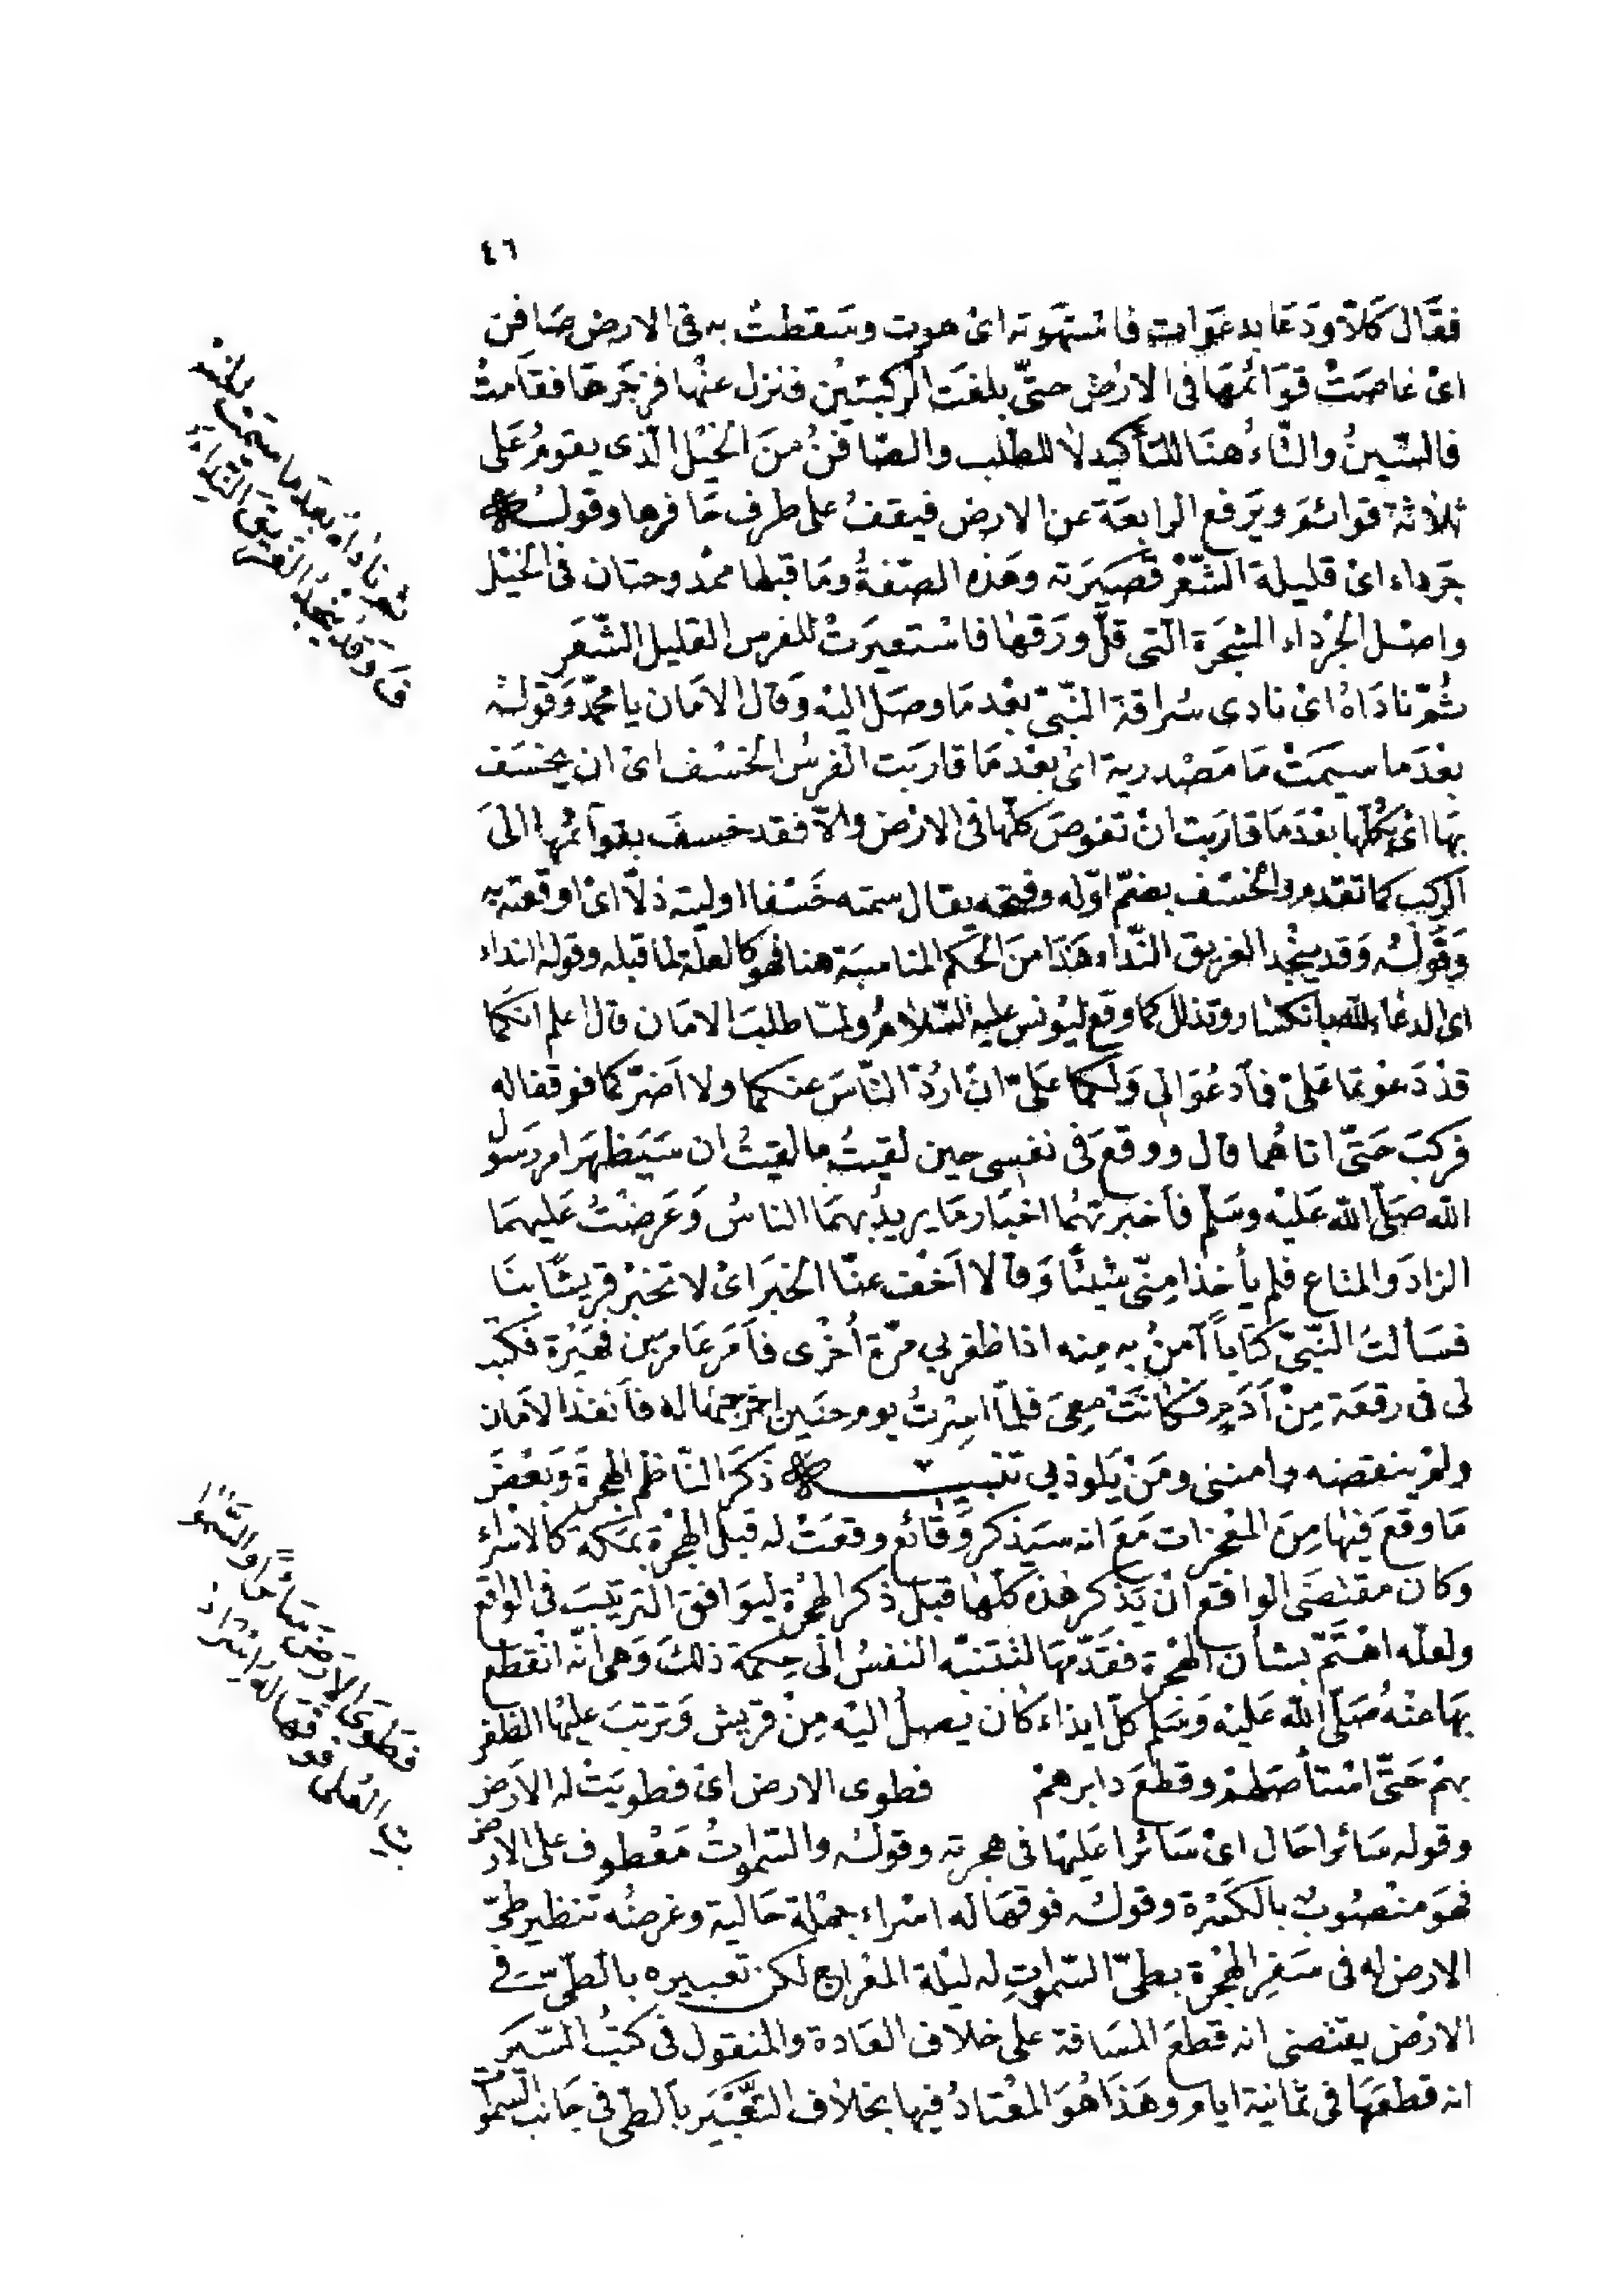 ٤٦
فقال كلا ودعا بدعوات فاستهوته اى هوت وسقطت به فى الارض صافن
اى غاصت قوائمها فى الارض حتى بلغت الركبتين فنزل عنها فزجرها فقامت
فالسين والتاء هنا للتأكيد لا للطلب والصافن من الخيل الذى يقوم على
ثلاثة قوائم ويرفع الرابعة عن الارض فيقف على طرف حافرها وقوله
جرداء اى قليلة الشعر قصيرته وهذه الصفة وما قبلها ممدوحتان فى الخيل
واصل الجرداء الشجرة التى قل ورقها فاستعيرت للفرس القليل الشعر
ثم ناداه اى نادى سراقة النبى بعد ما وصل اليه وقال الامان يا محمد وقوله
بعد ما سيمت ما مصدرية اى بعد ما قاربت الفرس الخسف اى ان يخسف
بها اى بكلها بعد ما قاربت ان تغوص كلها فى الارض والا فقد خسف بقوائمها الى
الركب كما تقدم والخسف بضم اوله وفتحه يقال سمته خسفا اوليته ذلا اى اوقعته به
وقوله وقد ينجد الغريق النداء هذا من الحكم المناسبة هنا فهو كالعلة لما قبله وقوله النداء
اى الدعاء لله بانكسار وتذلل كما وقع ليونس عليه السلام ولما طلب الامان قال اعلم انكما
قد دعوتما على فادعوا لى ولكما على ان ارد الناس عنكما ولا اضركما فوقفا له
فركب حتى اتاهما قال ووقع فى نفسى حين لقيت ما لقيت ان سيظهر امر رسول
الله صلى الله عليه وسلم فأخبرتهما اخبار ما يريد بهما الناس وعرضت عليهما
الزاد والمتاع فلم يأخذا منى شيئا وقالا اخف عنا الخبر اى لا تخبر قريشا بنا
فسألت النبى كتابا آمن به منه اذا ظفر بى مرة أخرى فأمر عامر بن فهيرة فكتب
لى فى رقعة من أدم فكانت معى فلما اسرت يوم حنين اخرجتها له فأنفذ الامان
ولم ينقضه وامننى ومن يلوذ بى تنبيه ذكر الناظم الهجرة وبعض
ما وقع فيها من المعجزات مع انه سيذكر وقائع وقعت له قبل الهجرة بمكة كالاسراء
وكان مقتضى الواقع ان يذكر هذه كلها قبل ذكر الهجرة ليوافق الترتيب فى الواقع
ولعله اهتم بشأن الهجرة فقدمها لتتنبه النفس الى حكمة ذلك وهى انه انقطع
بها عنه صلى الله عليه وسلم كل ايذاء كان يصل اليه من قريش وترتب عليها الظفر
بهم حتى استأصلهم وقطع دابرهم فطوى الارض اى فطويت له الارض
وقوله سائرا حال اى سائرا عليها فى هجرته وقوله والسموات معطوف على الارض
فهو منصوب بالكسرة وقوله فوقها له اسراء جملة حالية وغرضه تنظير طى
الارض له فى سفر الهجرة بطى السموات له ليلة المعراج لكن تعبيره بالطى فى
الارض يقتضى انه قطع المسافة على خلاف العادة والمنقول فى كتب السير
انه قطعها فى ثمانية ايام وهذا هو المعتاد فيها بخلاف التعبير بالطى فى جانب السموات
ثم ناداه بعد ما سيمت الخسـ
ـف وقد ينجد الغريق النداء
فطوى الارض سائرا والسموا
ت العلى فوقها له اسراء